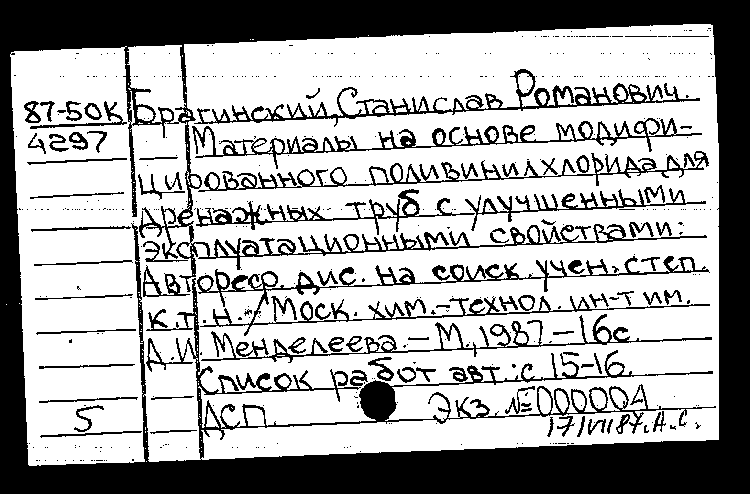 87-50К Брагинский, Станислав Романович.
4297 Материалы на основе модифи-
цированного поливинилхлорида для
дренажных труб с улучшенными
эксплуатационными свойствами:
Автореф. дис. на соиск. учен. степ.
к.т.н. / Моск. хим.-технол. ин-т им.
Д.И. Менделеева. – М., 1987. – 16с.
Список работ авт.: с. 15-16.
5 ДСП. Экз. №000004
17/VII 87. А.С.